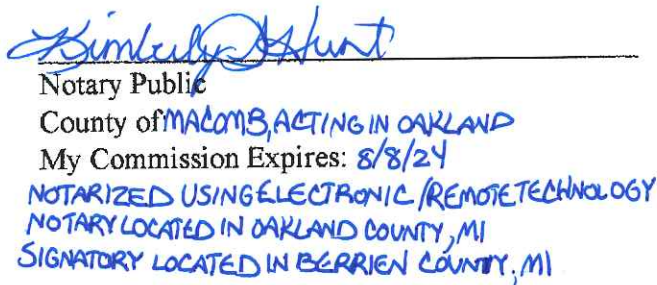 Kimberly J Hunt
Notary Public
County of MACOMB, ACTING IN OAKLAND
My Commission Expires: 8/8/24
NOTARIZED USING ELECTRONIC/REMOTE TECHNOLOGY
NOTARY LOCATED IN OAKLAND COUNTY, MI
SIGNATORY LOCATED IN BERRIEN COUNTY, MI